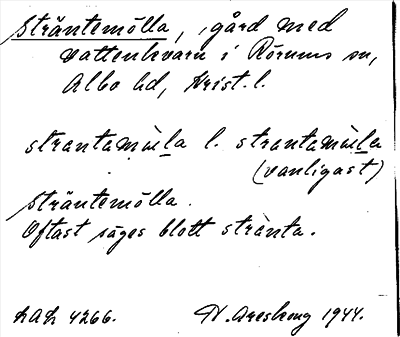 Sträntemölla, gård med
vattenkvarn i Rörums sn,
Albo hd, Krist. l.
strantamöllla l. strantamölla
(vanligast)
Sträntemölla.
Oftast säges blott stränta.
LAL 4266. N. Areskoug 1944.